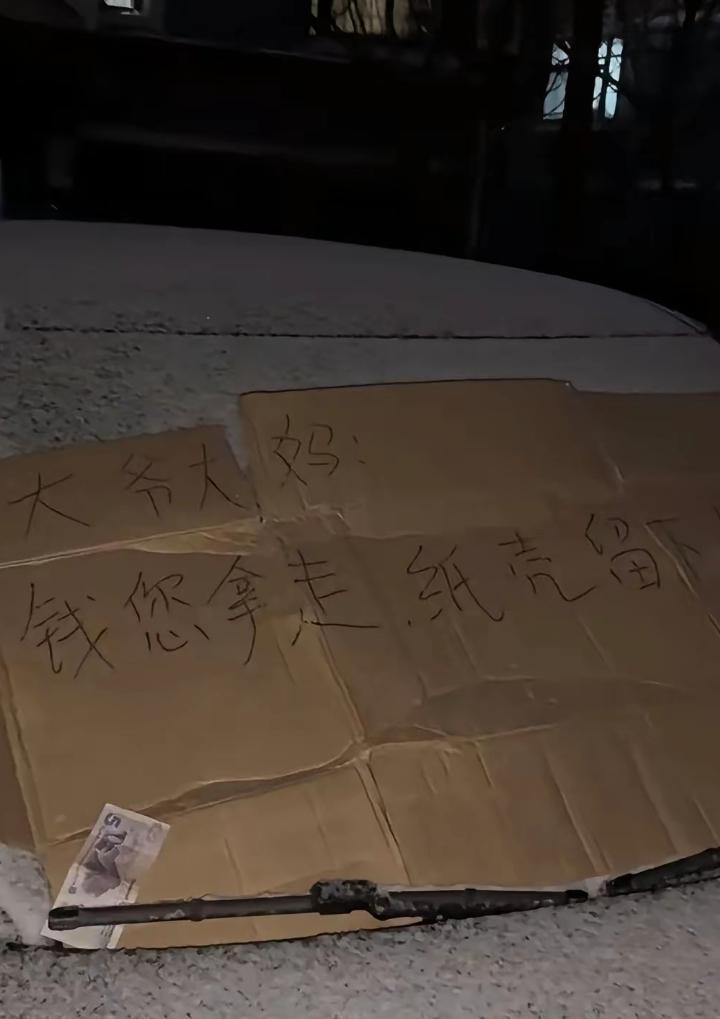 大爷大妈：
钱您拿走.纸壳留下
5